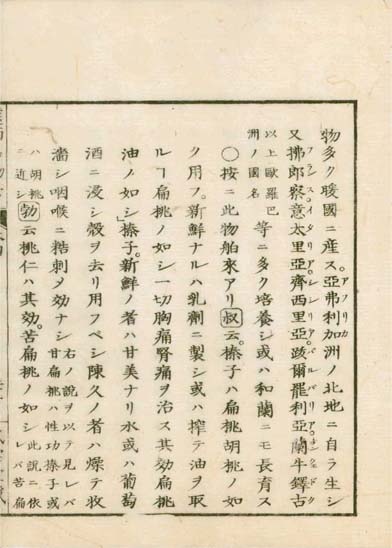 物多ク暖國ニ産ス。亞弗利加洲ノ北地ニ自ラ生シ
又拂郎察。意太里亞。齊西里亞。跋爾罷利亞。蘭牛鐸古
以上歐羅巴洲ノ國名等ニ多ク培養シ或ハ和蘭ニモ長育ス
〇按ニ此物舶來アリ叔云。榛子ハ扁桃胡桃ノ如
ク用フ。新鮮ナルハ乳劑ニ製シ或ハ搾テ油ヲ取
ルヿ扁桃ノ如シ一切胸痛腎痛ヲ治ス其効扁桃
油ノ如シ」榛子。新鮮ノ者ハ甘美ナリ水或ハ葡萄
酒ニ浸シ殼ヲ去リ用フベシ陳久ノ者ハ燥テ收
濇シ咽喉ニ刺ヲ効ナシ右ノ説ヲ以テ見レバ甘扁桃ハ性功榛子或
ハ胡桃ニ近シ勃云桃仁ハ其効。苦扁桃ノ如シ此説ニ依レバ苦扁